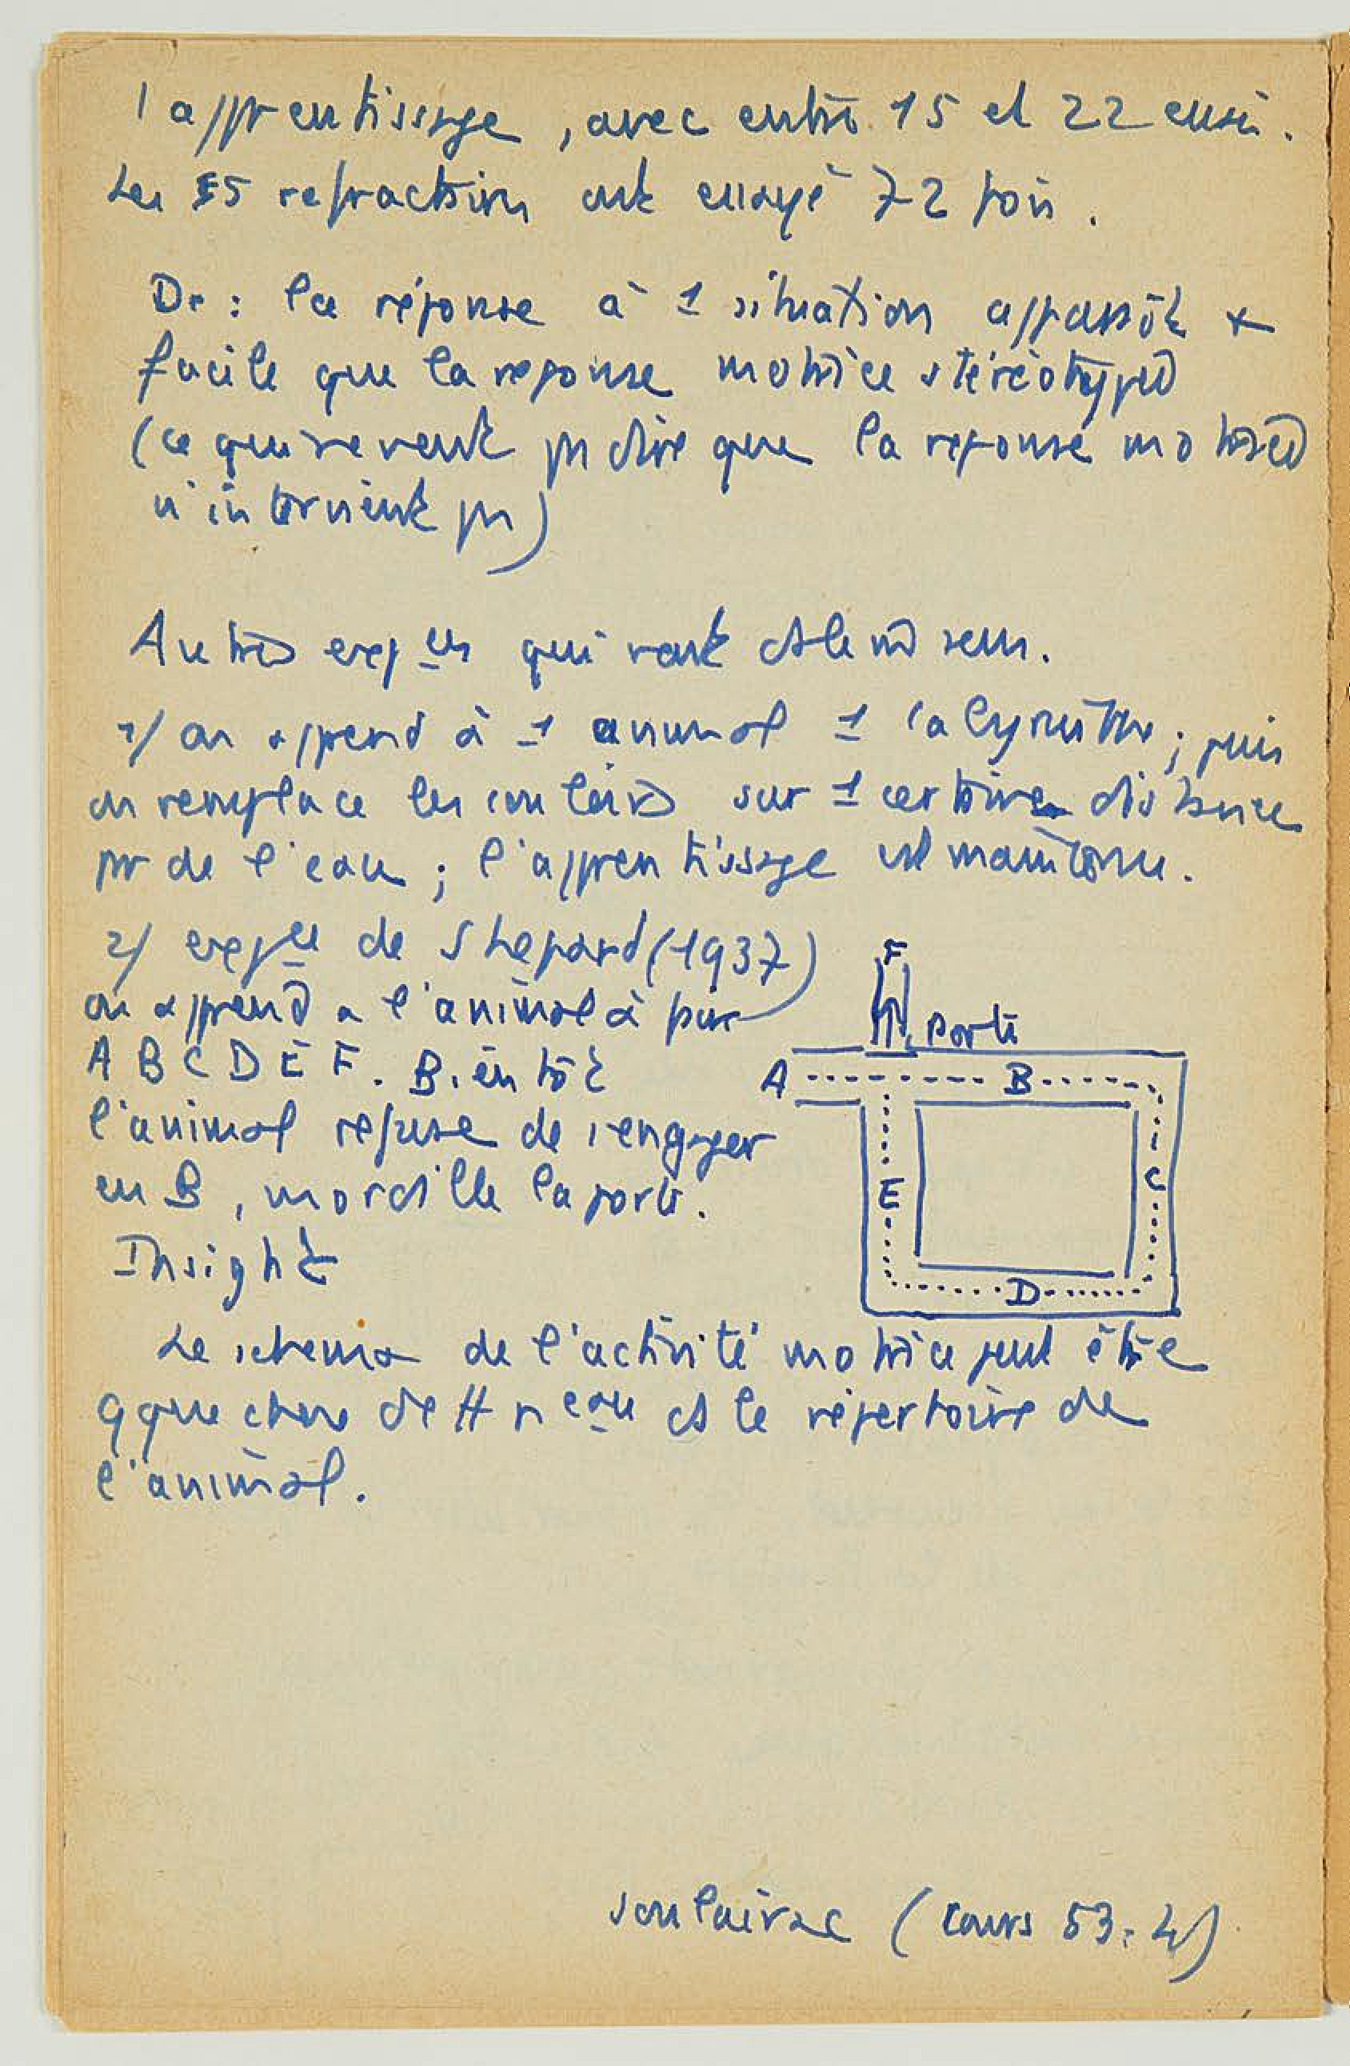 l'apprentissage, avec entre 15 et 22 essais.
Les 5 refractaires ont essayé 72 fois.
Dc : la réponse à 1 situation apparaît +
facile que la reponse motrice stéréotypée
(ce qui ne veut ps dire que la reponse motrice
n'intervient ps)
Autres exp ces qui vont ds le m̂ sens.
1/ on apprend à 1 animal 1 labyrinthe ; puis
on remplace les couloirs sur 1 certaine distance
pr de l'eau ; l'apprentissage est maintenu.
2/ expce de Shepard (1937)
on apprend a l'animal à
A B C D E F. Bientôt
l'animal refuse de s'engager
en B, mordille la porte.
Insight
F
porte
A B
C
E
D
Le schema de l'activité motrice peut être
qque chose de tt nveau ds le répertoire de
l'animal.
Soulairac (cours 53-4)